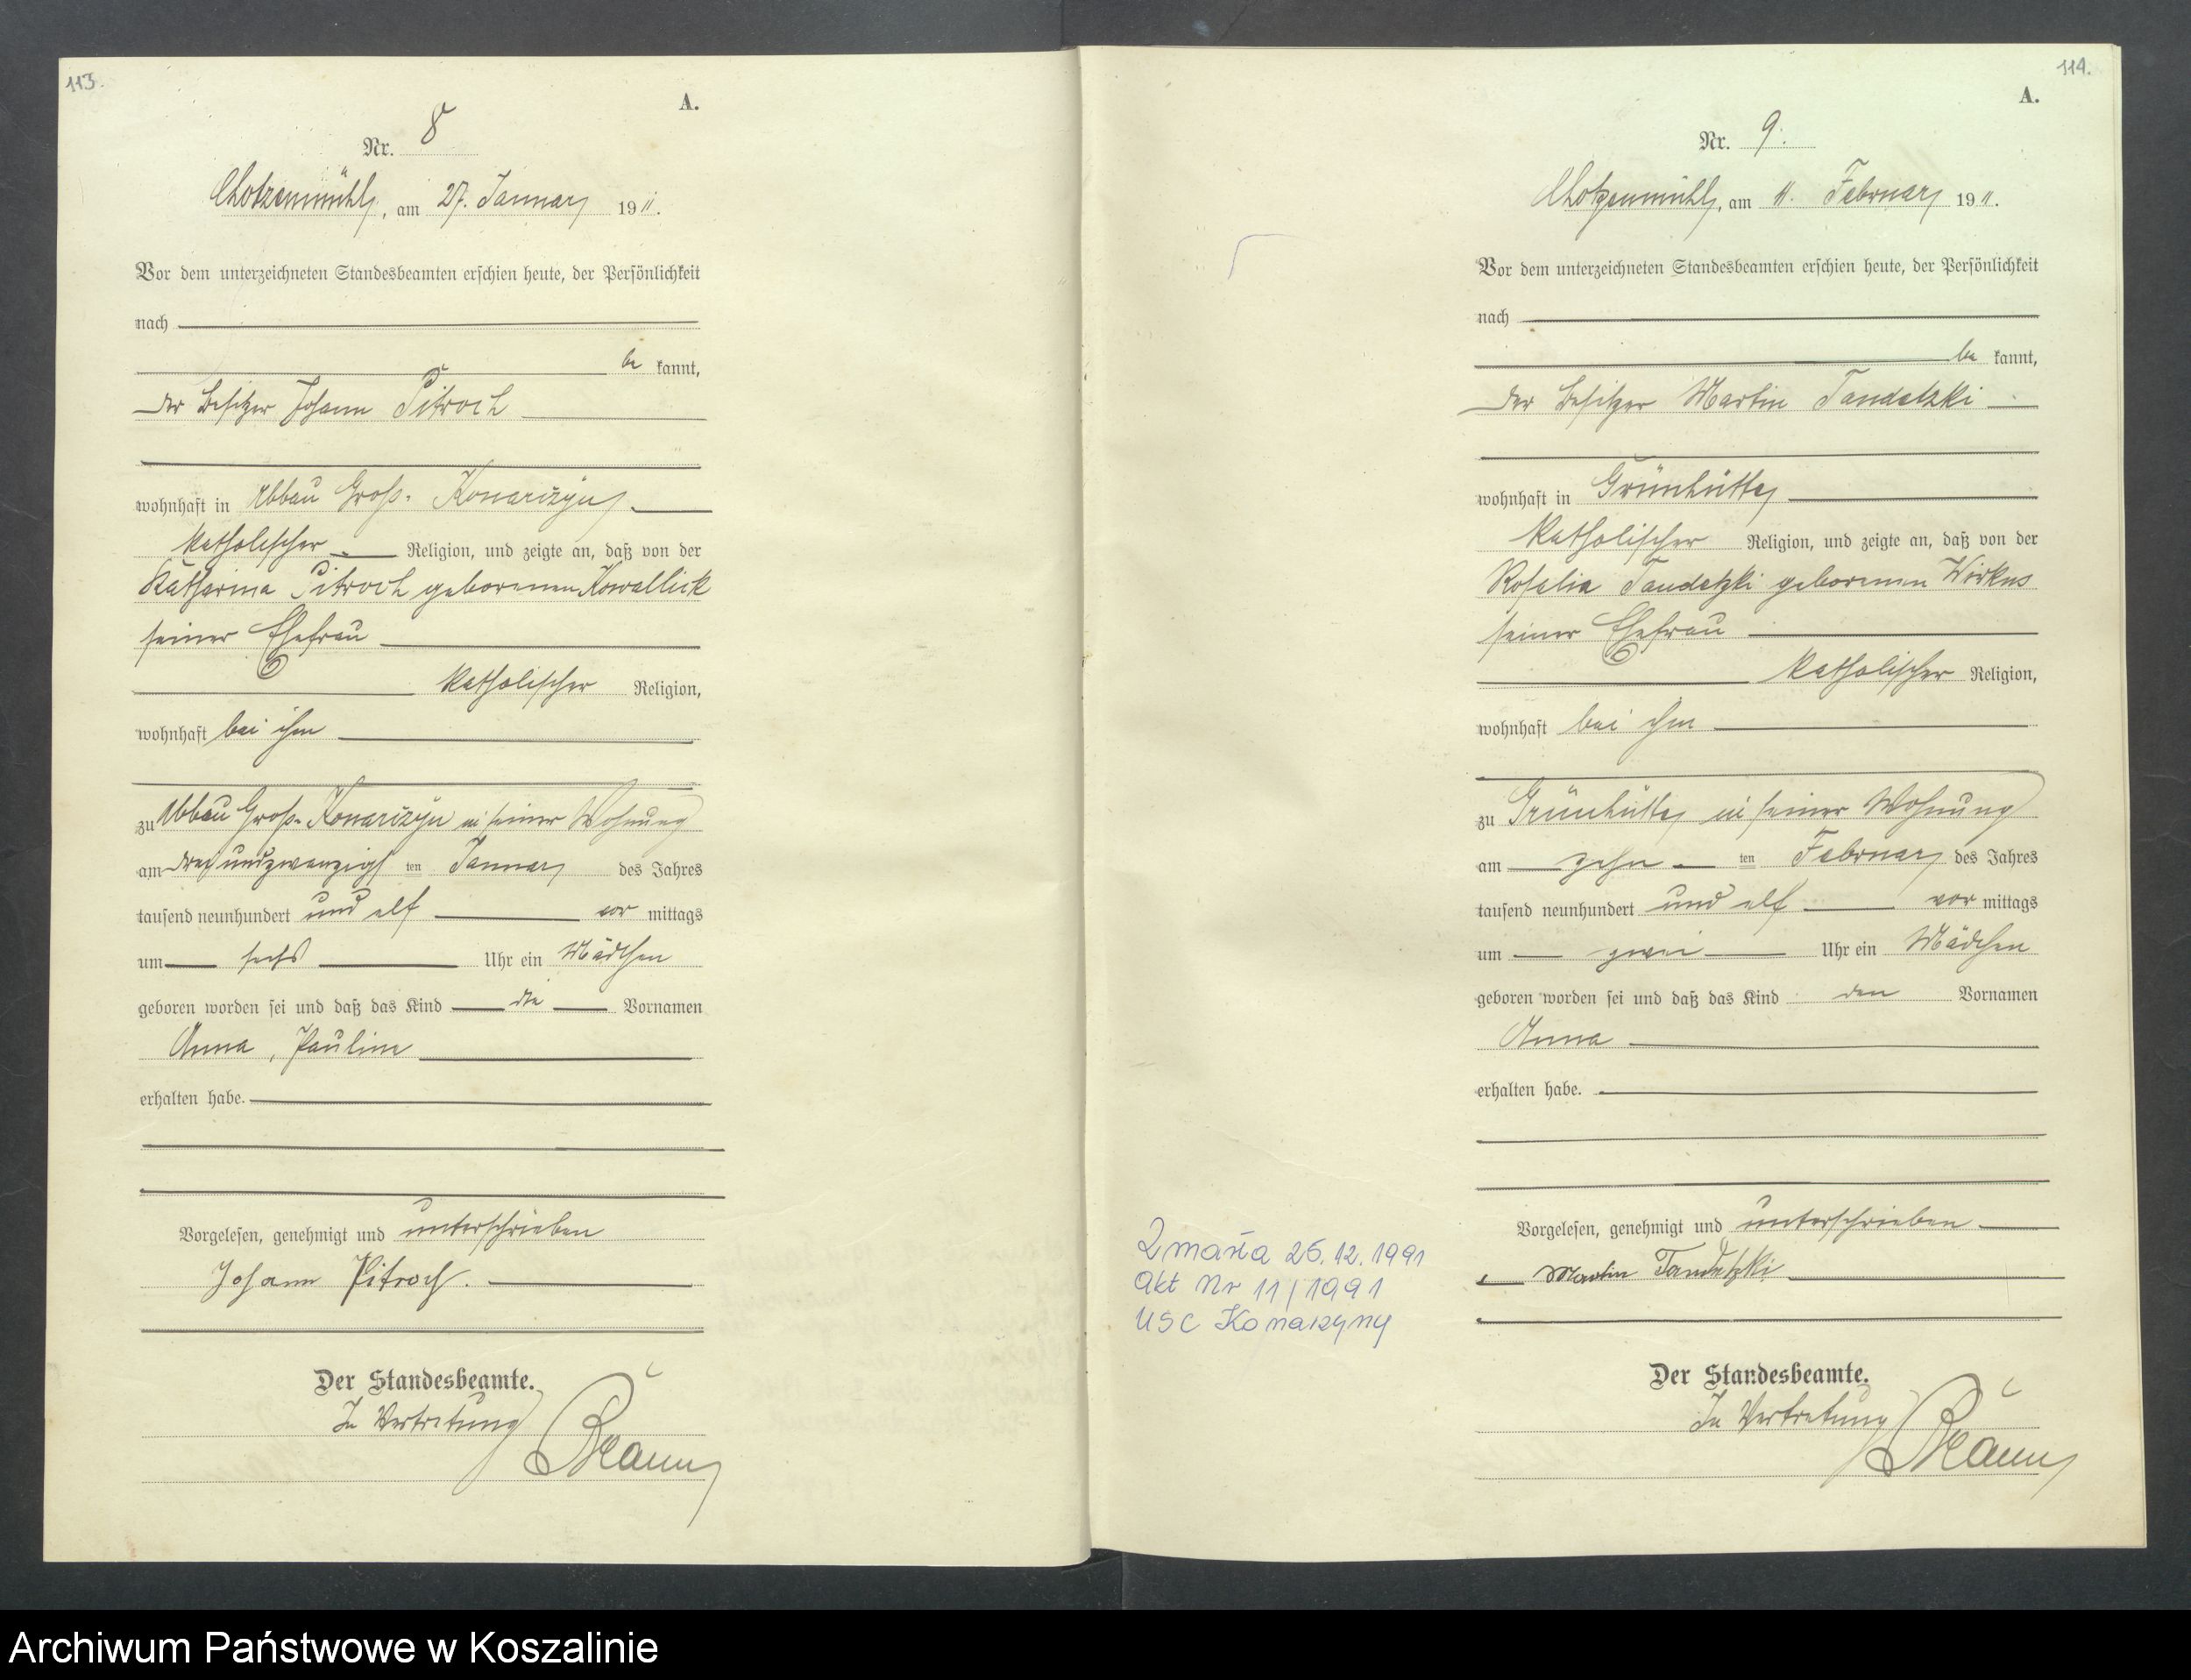 113.
A.
Nr. 8
Chotzenmühl, am 27. Januar 1911.
Vor dem unterzeichneten Standesbeamten erschien heute, der Persönlichkeit
nach
be kannt,
der Besitzer Johann Pitroch
wohnhaft in Abbau Groß-Konarczyn,
katholischer Religion, und zeigte an, daß von der
Katharina Pitroch geborenen Kowallick
seiner Ehefrau
katholischer Religion,
wohnhaft bei ihm
zu Abbau Groß-Konarczyn in seiner Wohnung
am dreiundzwanzigsten Januar des Jahres
tausend neunhundert und elf vor mittags
um sechs Uhr ein Mädchen
geboren worden sei und daß das Kind die Vornamen
Anna, Pauline
erhalten habe.
Vorgelesen, genehmigt und unterschrieben
Johann Pitroch.
Der Standesbeamte.
In Vertretung
Braun
114.
A.
Nr. 9.
Chotzenmühl, am 11. Februar 1911.
Vor dem unterzeichneten Standesbeamten erschien heute, der Persönlichkeit
nach
be kannt,
der Besitzer Martin Tandetzki
wohnhaft in Grünhütte,
katholischer Religion, und zeigte an, daß von der
Rosalia Tandetzki geborenen Wirkus
seiner Ehefrau
katholischer Religion,
wohnhaft bei ihm
zu Grünhütte, in seiner Wohnung
am zehn ten Februar des Jahres
tausend neunhundert und elf vor mittags
um zwei Uhr ein Mädchen
geboren worden sei und daß das Kind den Vornamen
Anna
erhalten habe.
Vorgelesen, genehmigt und unterschrieben
Martin Tandetzki
Der Standesbeamte.
In Vertretung
Braun
Zmarła 26.12.1991
Akt Nr 11/1991
USC Konarzyny
Archiwum Państwowe w Koszalinie